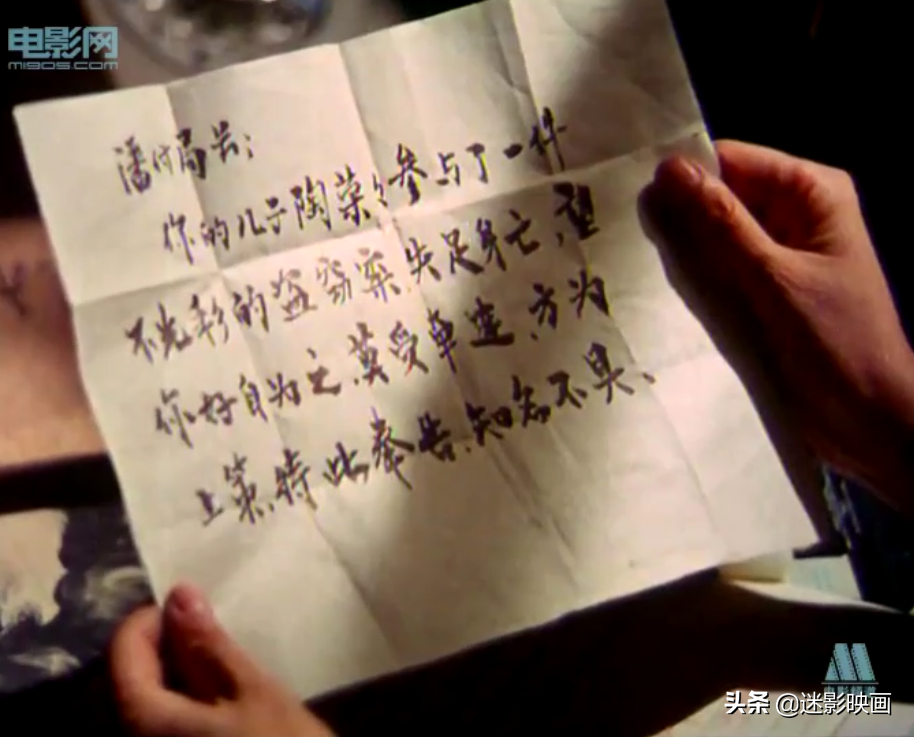 电影网
m1905.com
潘付局长：
你的儿子陶菜々参与了一件
不光彩的盗窃案失足身亡，望
你好自为之、莫受牵连、方为
上策、特此奉告、知名不具、
头条 @迷影映画